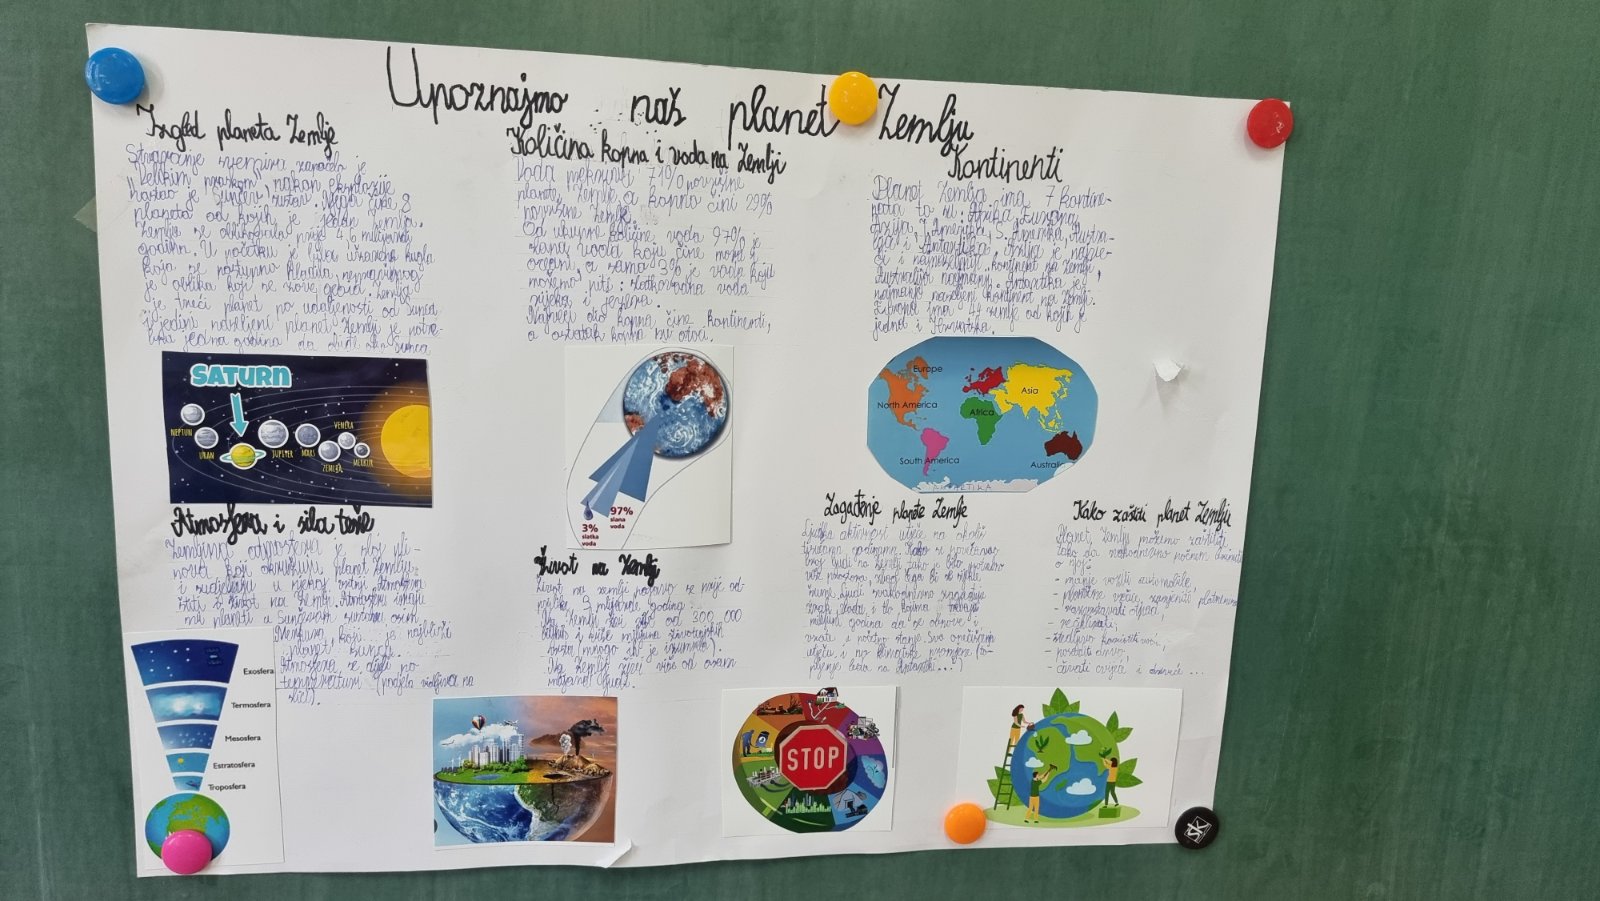 Upoznajmo naš planet Zemlju
Izgled planeta Zemlje
Stvaranje svemira započelo je
Velikim praskom, nakon eksplozije
nastao je Sunčev sustav. Njega čine 8
planeta od kojih je jedan Zemlja.
Zemlja se oblikovala prije 4,6 milijardi
godina. U početku je bila užarena kugla
koja se postupno hladila, nepravilnog
je oblika koji se zove geoid. Zemlja
je treći planet po udaljenosti od Sunca
i jedini naseljeni planet. Zemlji je potre-
bna jedna godina da obiđe oko Sunca
SATURN
NEPTUN
URAN
JUPITER
MARS
ZEMLJA
VENERA
MERKUR
Atmosfera i sila teže
Zemljina atmosfera je sloj pli-
nova koji okružuju planet Zemlju
i sudjeluju u njenoj rotaciji. Atmosfera
štiti život na Zemlji. Atmosferu imaju
svi planeti u Sunčevom sustavu osim
Merkura, koji je najbliži
planet Suncu.
Atmosfera se dijeli po
temperaturi (podjela vidljiva na
slici).
Exosfera
Termosfera
Mesosfera
Estratosfera
Troposfera
Količina kopna i voda na Zemlji
Voda prekriva 71% površine
planete Zemlje a kopno čini 29%
površine Zemlje.
Od ukupne količine voda 97% je
slana voda koju čine mora i
oceani, a samo 3% je voda koju
možemo piti: slatkovodna voda
rijeka i jezera.
Najveći dio kopna čine kontinenti,
a ostatak kopna su otoci.
97%
slana
voda
3%
slatka
voda
Život na Zemlji
Život na zemlji pojavio se prije ot-
prilike 3 milijarde godina.
Na Zemlji živi više od 300 000
biljaka i više milijuna životinjskih
vrsta (mnogo ih je izumrlo).
Na Zemlji živi više od osam
milijardi ljudi.
Kontinenti
Planet Zemlja ima 7 kontine-
nata to su: Afrika, Europa,
Azija, J. Amerika, S. Amerika, Austra-
lija i Antarktika. Azija je najve-
ći i najnaseljeniji kontinent na Zemlji,
Australija najmanji. Antarktika je
najmanje naseljeni kontinent na Zemlji.
Europa ima 44 zemlje od kojih je
jedna i Hrvatska.
Europe
Asia
North America
Africa
South America
Australi
Zagađenje planete Zemlje
Ljudska aktivnost utječe na okoliš
tisućama godinama. Kako se povećavao
broj ljudi na Zemlji tako je bilo potrebno
više prostora,
Ljudi svakodnevno zagađuju
zrak, vodu i tlo kojima trebaju
milijuni godina da se obnove i
vrate u početno stanje. Sva onečišćenja
utječu i na klimatske promjene (to-
pljenje leda na Antarktici...)
STOP
Kako zaštiti planet Zemlju
Planet Zemlju možemo zaštititi
tako da neposredno počnemo brinuti
o njoj:
- manje voziti automobile,
- plastične vrećice zamjeniti platnenim,
- razvrstavati otpad,
- reciklirati,
- štedljivo koristiti vodu,
- posaditi drvo,
- čuvati cvijeće i drveće ...